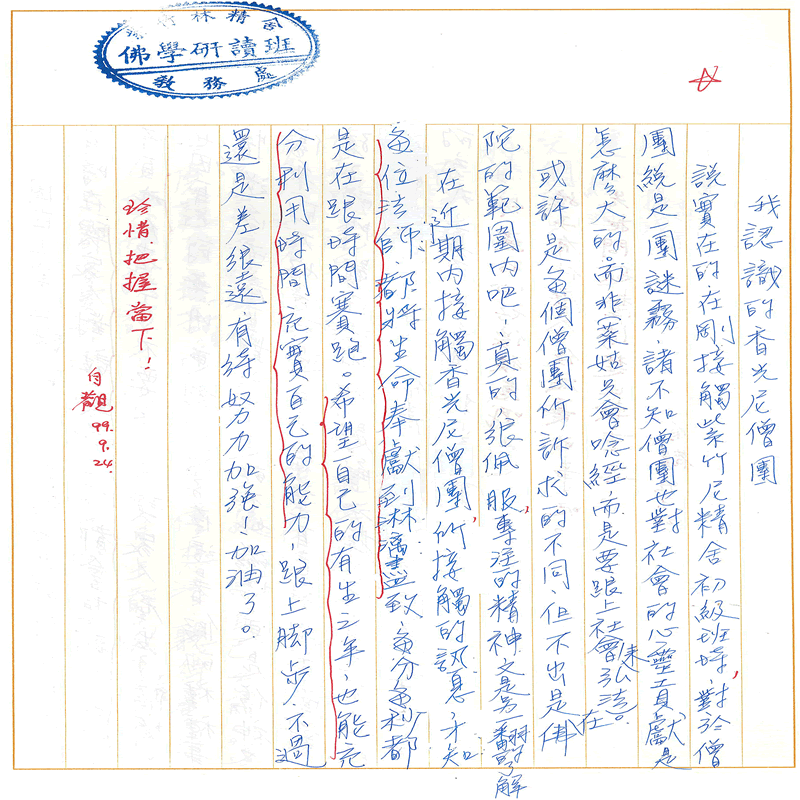 竹林精舍
佛學研讀班
教務處
我認識的香光尼僧團
說實在的,在剛接觸紫竹尼精舍初級班時,對於僧
團總是一團謎霧,諸不知僧團也對社會的心靈貢獻是
怎麼大的。而非菜姑只會唸經,而是要跟上社會來弘法。
或許是每個僧團所訴求的不同,但不出是在佛
陀的範圍內吧!真的,很佩服,專注的精神又是另一番的了解
在近期內接觸香光尼僧團,所接觸的訊息,才知
每位法師,都將生命奉獻到淋漓盡致,每分每秒都
是在跟時間賽跑。希望自己的有生之年,也能充
分利用時間,充實自己的能力,跟上腳步,不過
還是差很遠,有待努力加強!加油了。
珍惜、把握當下!
自觀
99.
9.
24.